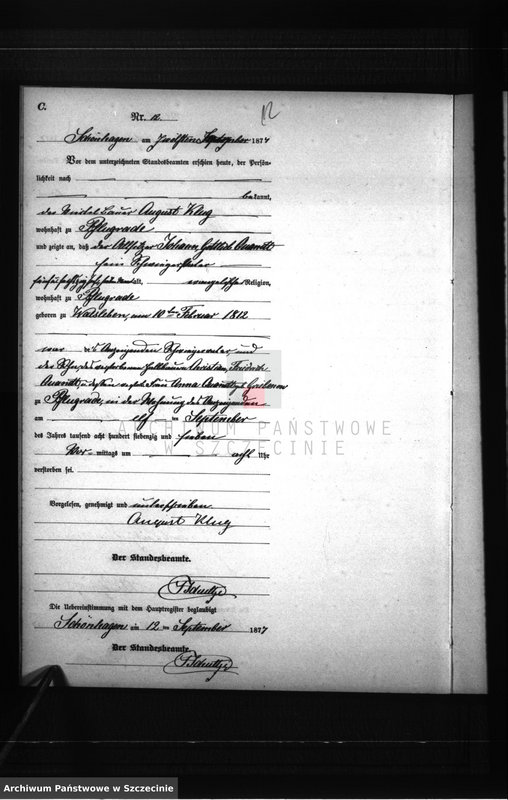 C.
12
Nr. 12.
Schönhagen am zwölften September 1877
Vor dem unterzeichneten Standesbeamten erschien heute, der Persön-
lichkeit nach
bekannt,
der August Klug
wohnhaft zu Pflugrade
und zeigte an, daß der Altsitzer Johann Gottlieb
sein Schwiegervater
alt, evangelischer Religion,
wohnhaft zu Pflugrade
geboren zu am 10ten Februar 1812
war des Anzeigenden Schwiegervater, und
der Sohn des verstorbenen Christian Friedrich
Frau Anna
zu Pflugrade, in der Wohnung des Anzeigenden
am elf ten September
des Jahres tausend acht hundert siebenzig und sieben
Vor- mittags um acht Uhr
verstorben sei.
Vorgelesen, genehmigt und unterschrieben
August Klug
Der Standesbeamte.
Die Uebereinstimmung mit dem Hauptregister beglaubigt
Schönhagen am 12ten September 1877
Der Standesbeamte.
ARCHIWUM PAŃSTWOWE
W SZCZECINIE
Archiwum Państwowe w Szczecinie